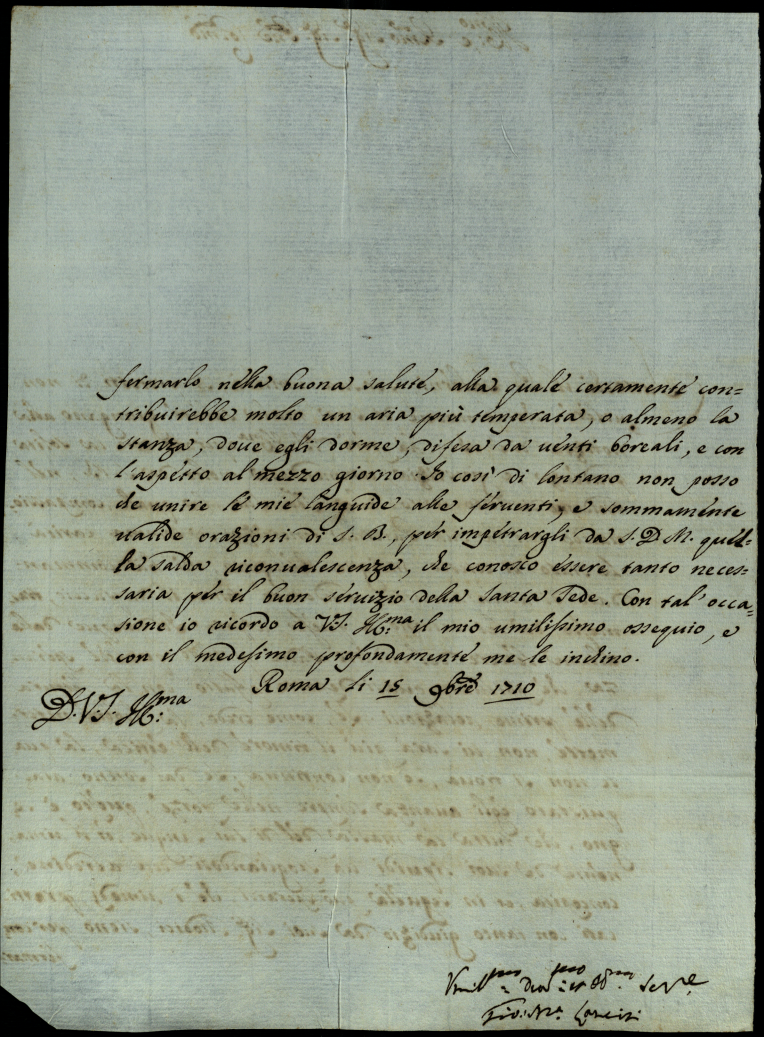 fermarlo nella buona salute, alla quale certamente con=
tribuirebbe molto un aria più temperata, o almeno la
stanza, doue egli dorme, difesa da uenti boreali, e con
l'aspetto al mezzo giorno. Io così di lontano non posso
che unire le mie languide alle feruenti, e sommamente
ualide orazioni di S. B., per impetrargli da S. D. M. quel=
la salda riconualescenza, che conosco essere tanto neces=
saria per il buon seruizio della Santa Sede. Con tal' occa=
sione io ricordo a V.S. Ill:ma il mio umilissimo ossequio, e
con il medesimo profondamente me le inchino.
Roma li 15 9bre 1710
D. V.S. Ill:ma
Vmil:mo Deu:mo et Obb:mo Ser.re
Gio: M.a Lancisi